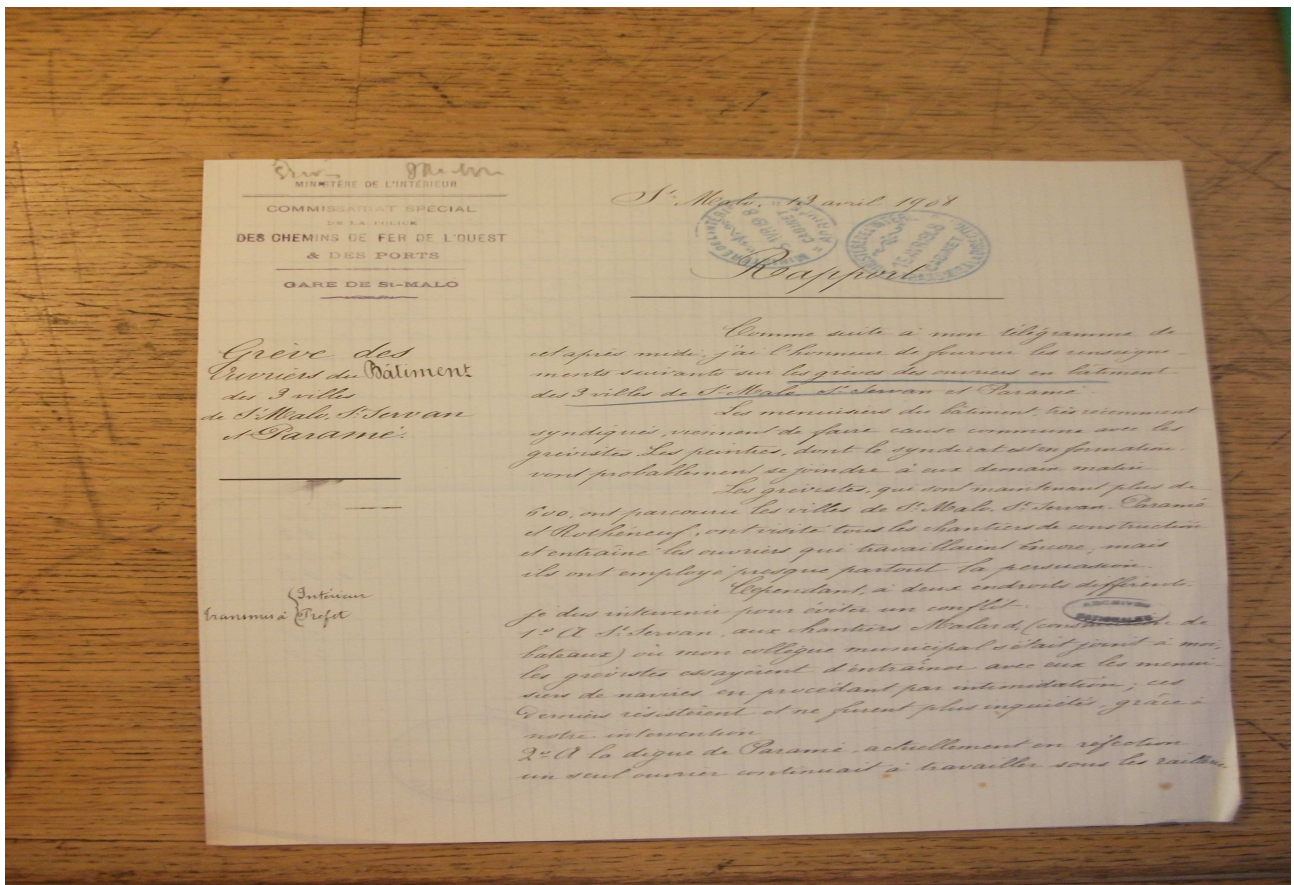 MINISTÈRE DE L'INTÉRIEUR
COMMISSARIAT SPÉCIAL
DE LA POLICE
DES CHEMINS DE FER DE L'OUEST
& DES PORTS
GARE DE St-MALO
Grève des
Ouvriers du Bâtiment
des 3 villes
de St Malo, St Servan
et Paramé.
Transmis à { Intérieur
Préfet
St Malo, 13 avril 1908
Rapport
Comme suite à mon télégramme de
cet après midi, j'ai l'honneur de fournir les renseigne-
ments suivants sur les grèves des ouvriers en bâtiment
des 3 villes de St Malo, St Servan et Paramé.
Les menuisiers du bâtiment, très récemment
syndiqués, viennent de faire cause commune avec les
grévistes. Les peintres, dont le syndicat est en formation
vont probablement se joindre à eux demain matin.
Les grévistes, qui sont maintenant plus de
600, ont parcouru les villes de St Malo, St Servan, Paramé
et Rothéneuf, ont visité tous les chantiers de construction
et entraîné les ouvriers qui travaillaient encore, mais
ils ont employé presque partout la persuasion.
Cependant, à deux endroits différents,
je dus intervenir pour éviter un conflit.
ARCHIVES
NATIONALES
1° A St Servan, aux chantiers Malard, (constructeur de
bateaux) où mon collègue municipal s'était joint à moi,
les grévistes essayèrent d'entraîner avec eux les menui-
siers de navires en procédant par intimidation; ces
derniers résistèrent et ne furent plus inquiétés, grâce à
notre intervention
2° A la digue de Paramé, actuellement en réfection
un seul ouvrier continuait à travailler sous les